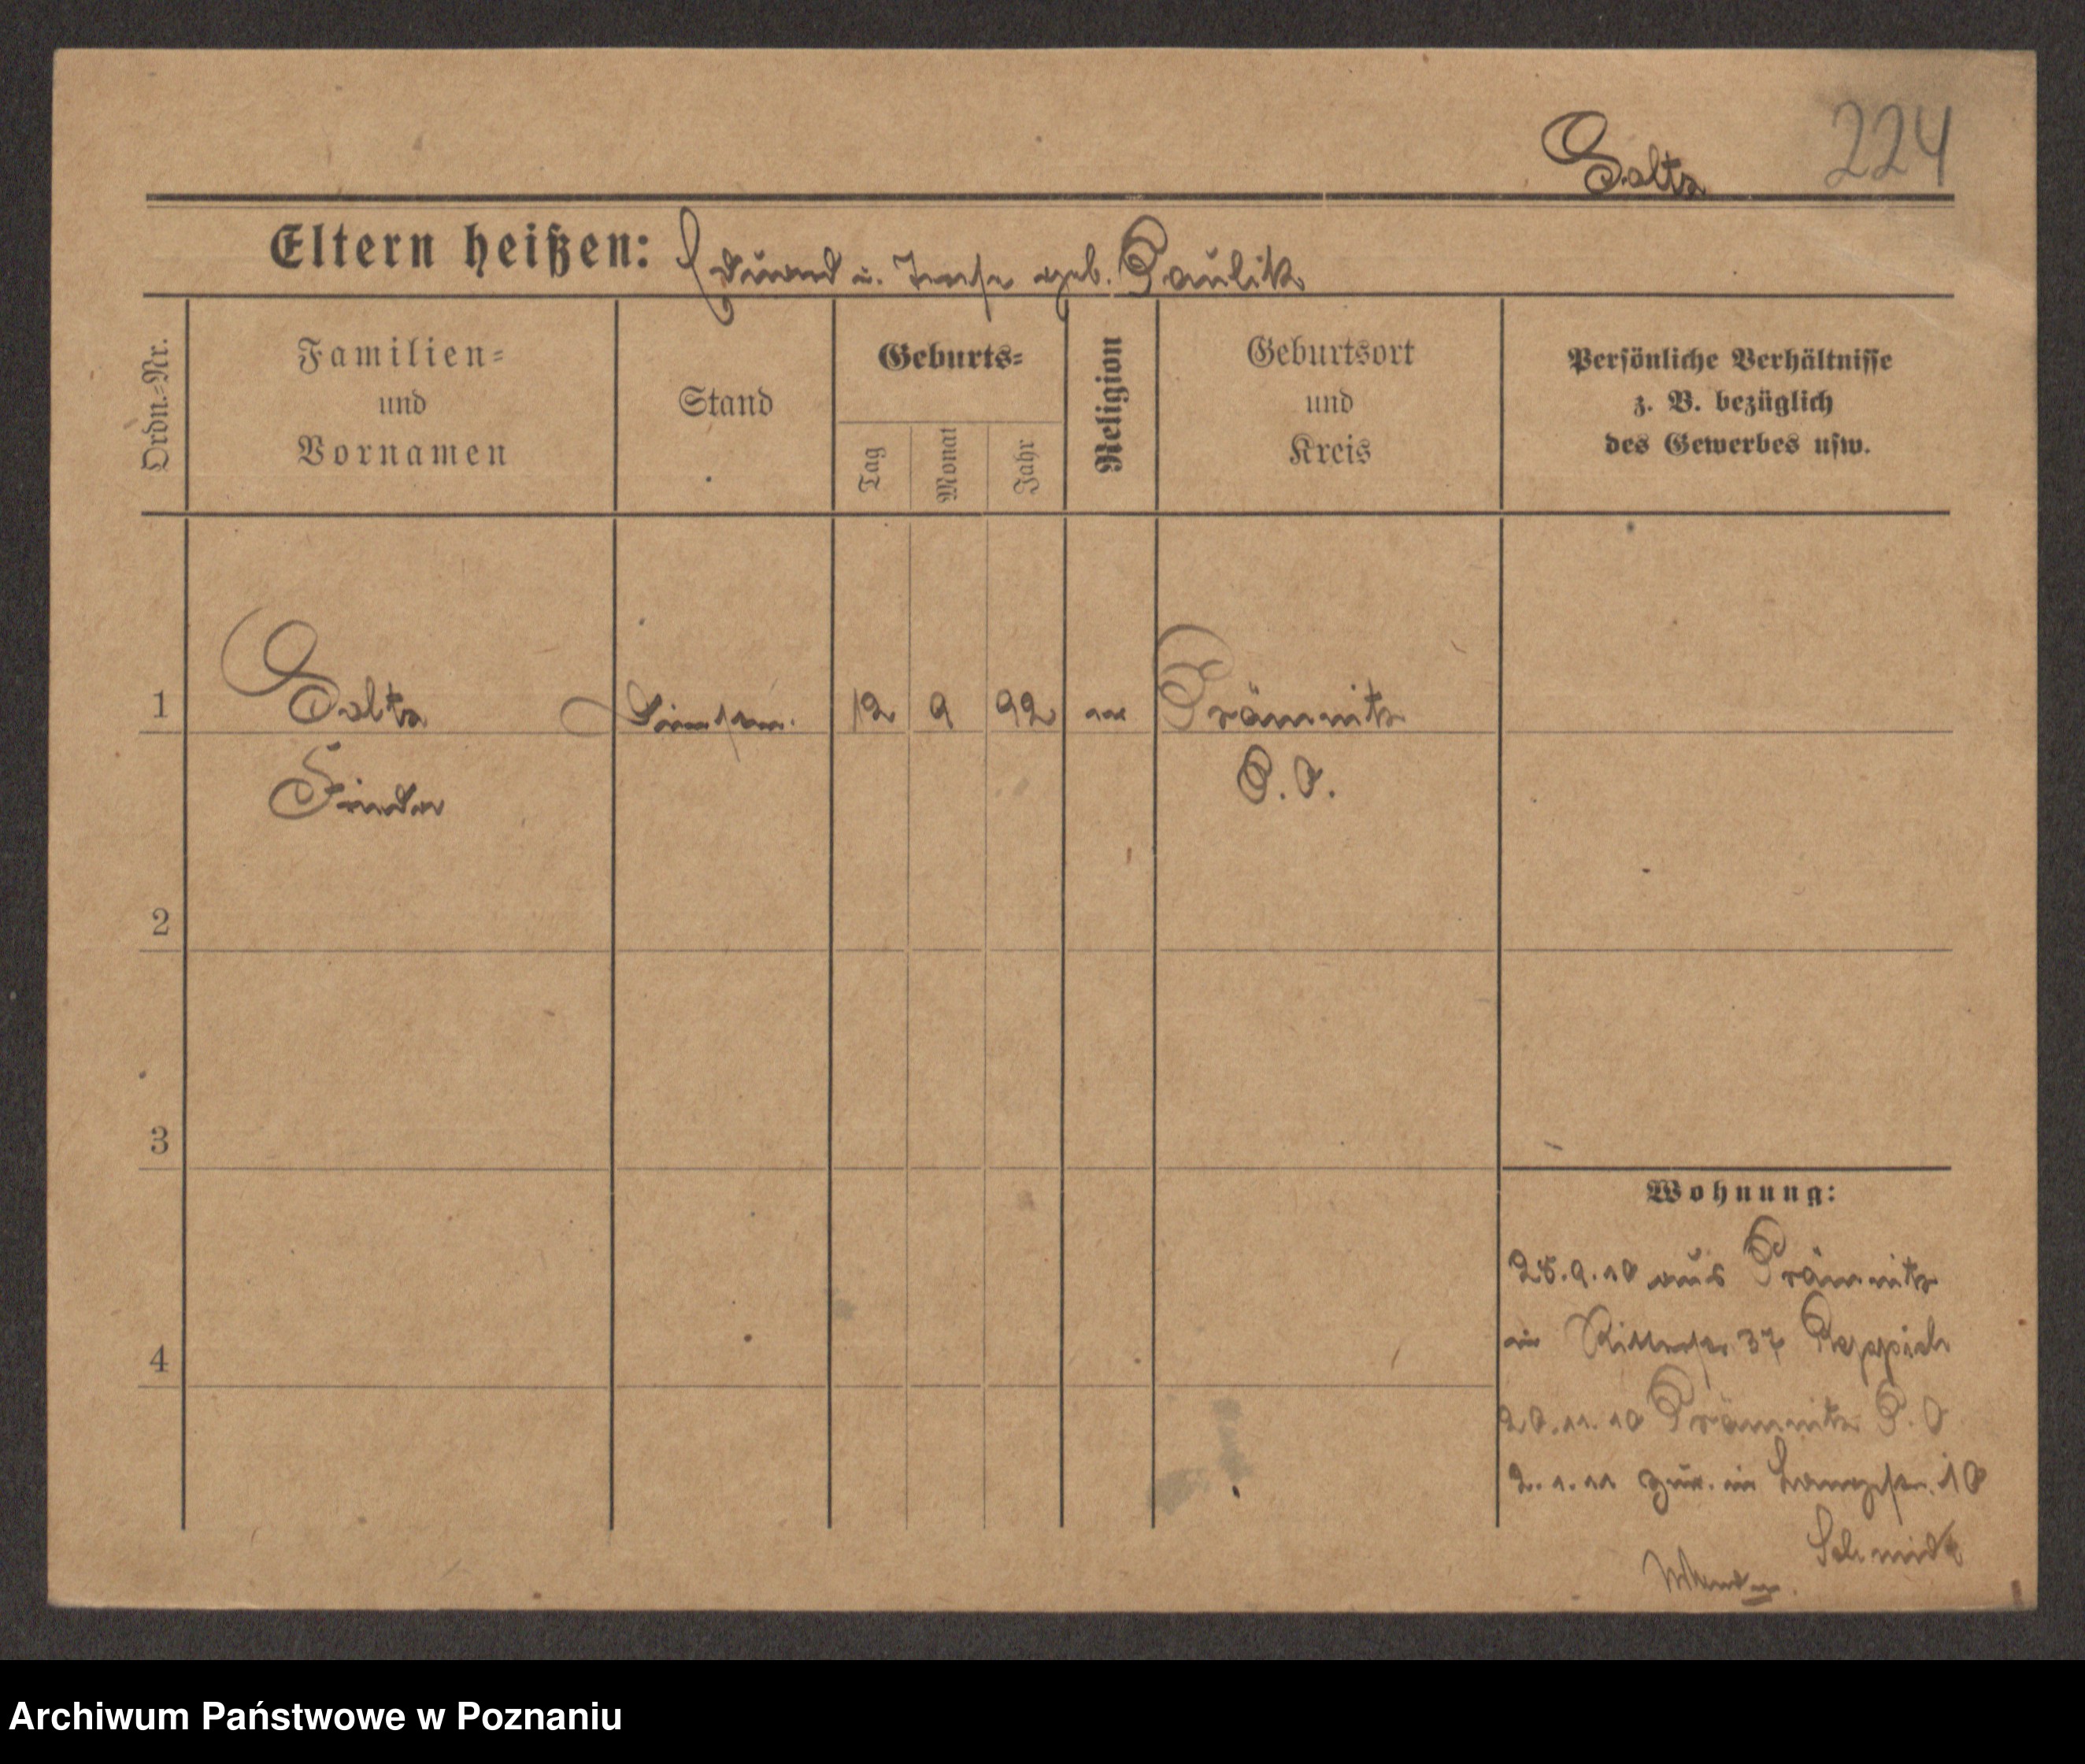 Saltz 224
Eltern heißen: Eduard u. geb. Paulik
Ordn.-Nr.
Familien-
und
Vornamen
Stand
Geburts-
Tag
Monat
Jahr
Religion
Geburtsort
und
Kreis
Persönliche Verhältnisse
z. B. bezüglich
des Gewerbes usw.
1 12 9 92 Prämnitz
P. O.
2
3
Wohnung:
4
28.9.10 aus Prämnitz
in Ritterstr. 37
20.11.10 Prämnitz P. O
2.1.11 zur. in Langestr. 10
Schmidt
Archiwum Państwowe w Poznaniu